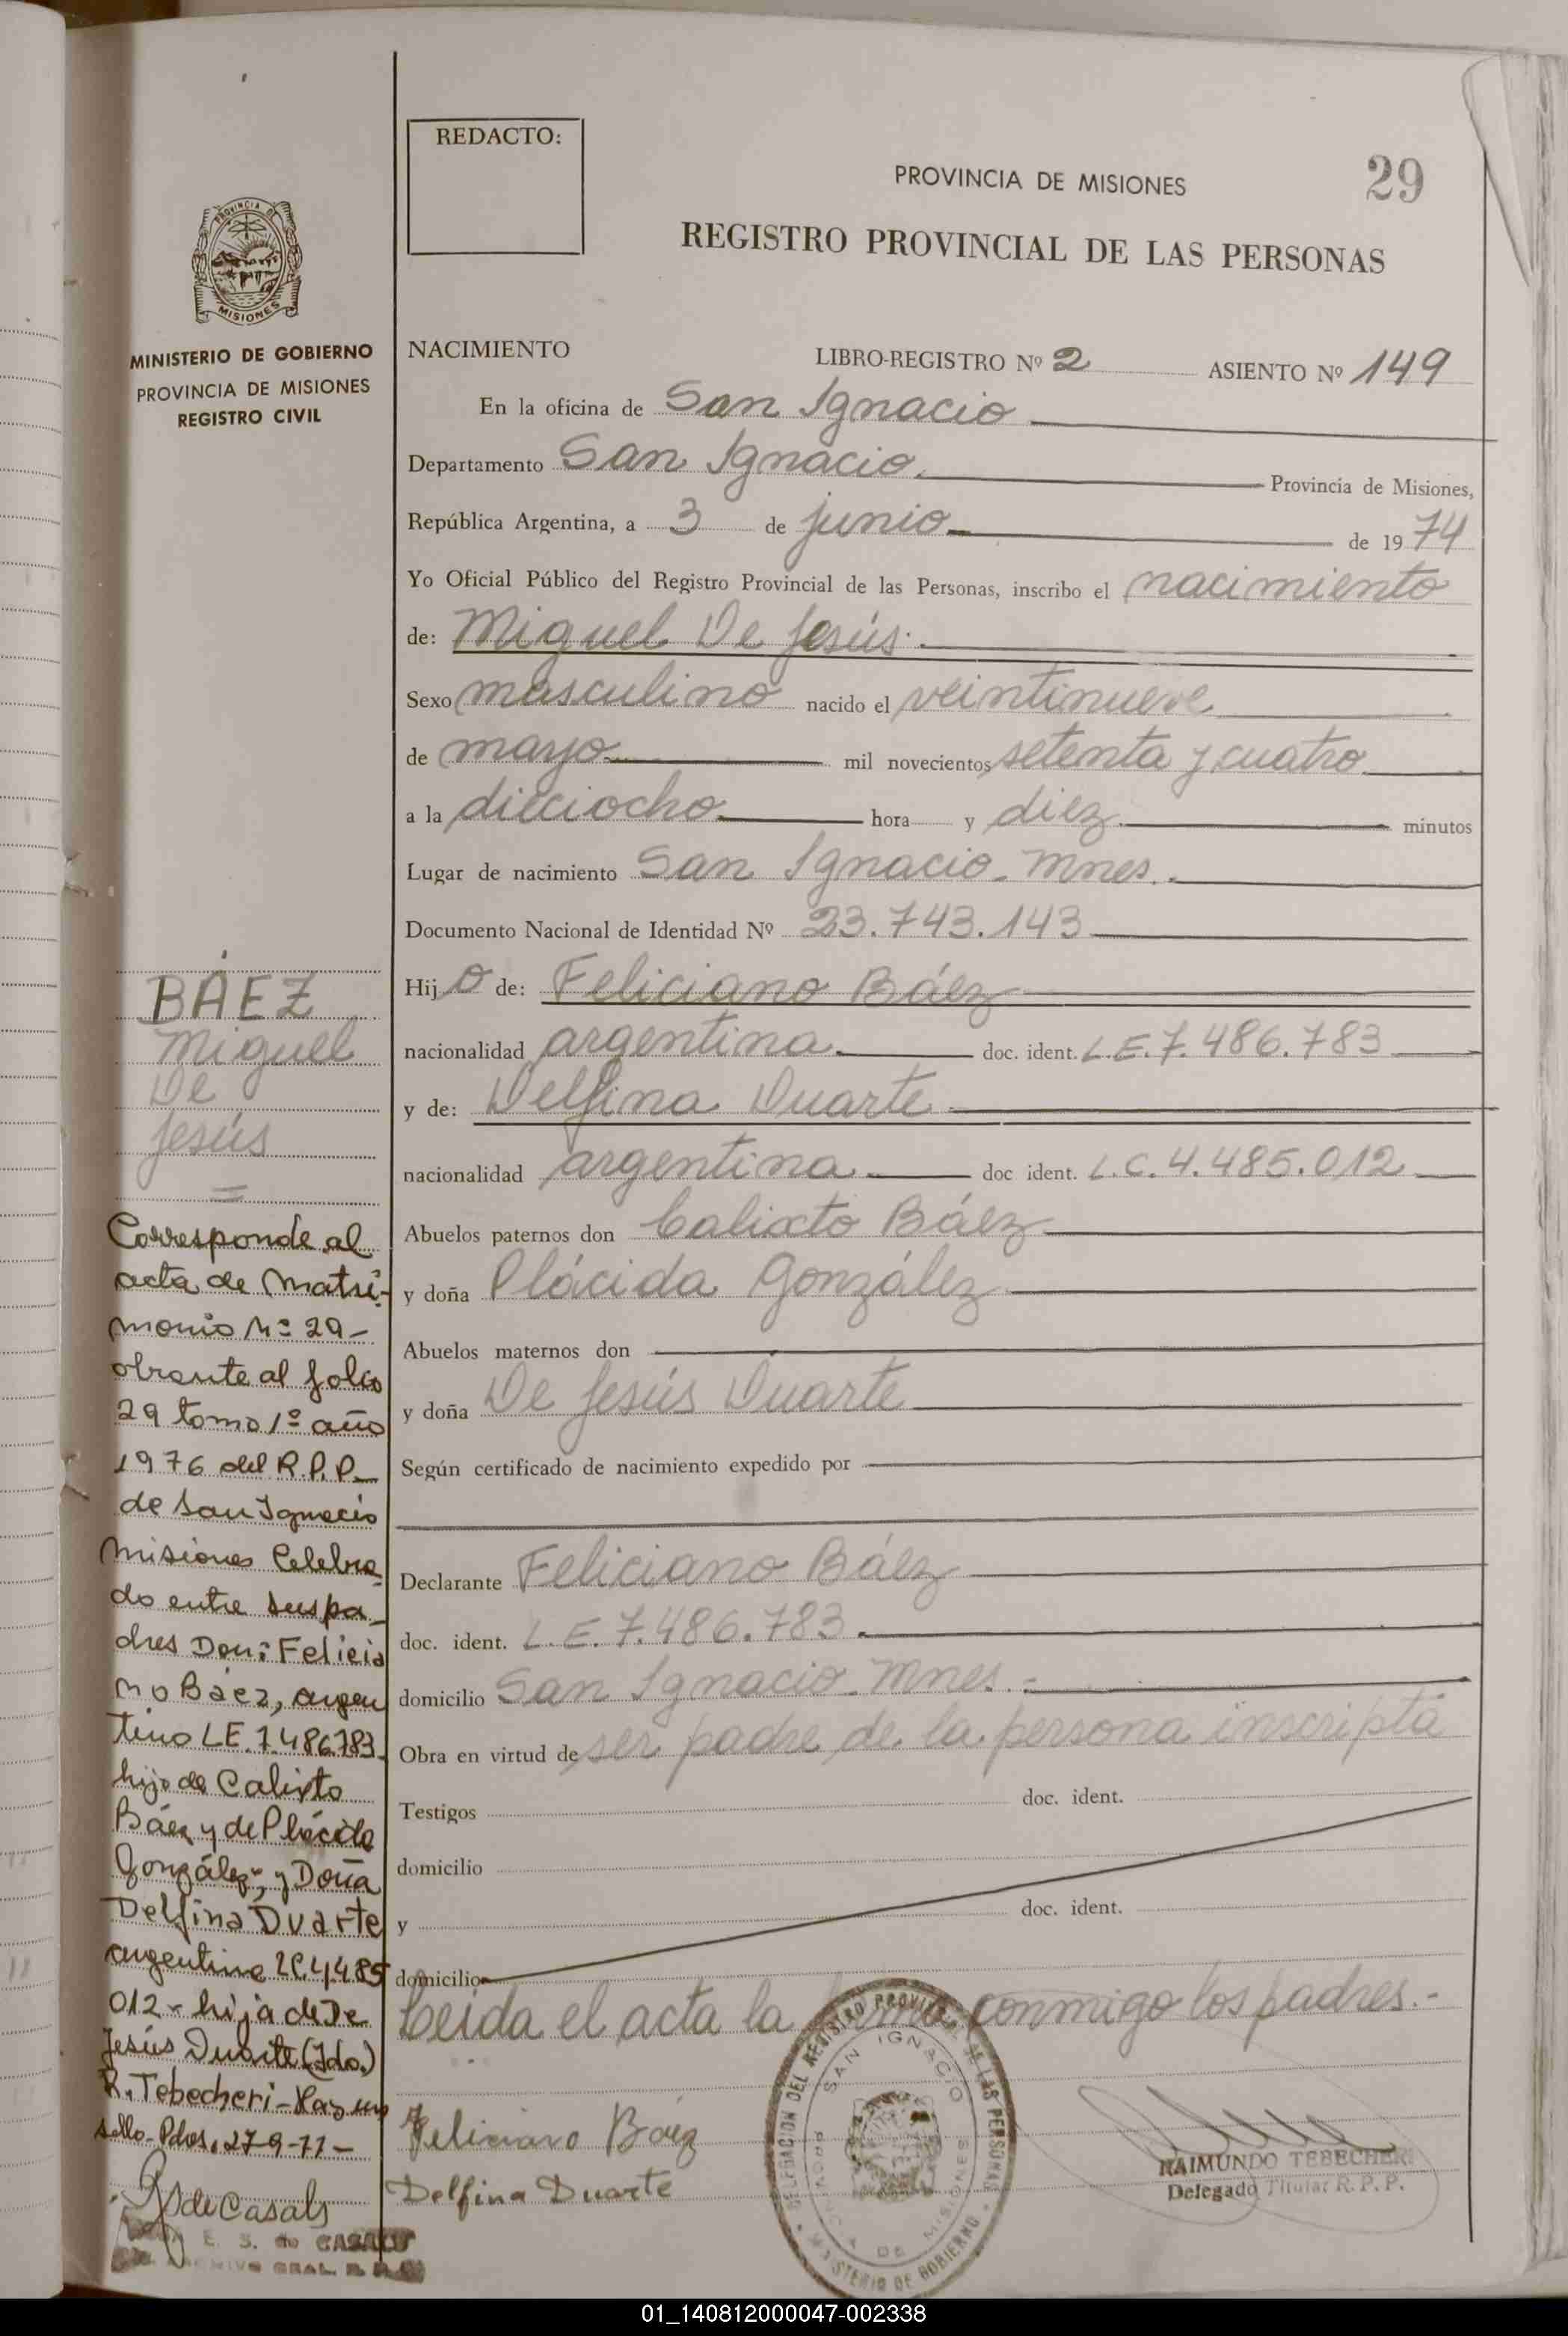 REDACTO:
PROVINCIA DE MISIONES
29
REGISTRO PROVINCIAL DE LAS PERSONAS
PROVINCIA DE
MISIONES
MINISTERIO DE GOBIERNO
PROVINCIA DE MISIONES
REGISTRO CIVIL
NACIMIENTO LIBRO-REGISTRO Nº 2 ASIENTO Nº 149
En la oficina de San Ignacio
Departamento San Ignacio. Provincia de Misiones,
República Argentina, a 3 de junio de 1974
Yo Oficial Público del Registro Provincial de las Personas, inscribo el nacimiento
de: Miguel De Jesús.
Sexo masculino nacido el veintinueve
de mayo mil novecientos setenta y cuatro
a la dieciocho hora y diez minutos
Lugar de nacimiento San Ignacio-Mnes.
Documento Nacional de Identidad Nº 23.743.143
Hijo de: Feliciano Báez
nacionalidad argentina. doc. ident. L.E.7.486.783
y de: Delfina Duarte
nacionalidad argentina doc ident. L.C.4.485.012
Abuelos paternos don Calixto Báez
y doña Plácida González
Abuelos maternos don
y doña De Jesús Duarte
Según certificado de nacimiento expedido por
Declarante Feliciano Báez
doc. ident. L.E.7.486.783.
domicilio San Ignacio-Mnes.-
Obra en virtud de ser padre de la persona inscripta
Testigos doc. ident.
domicilio
y doc. ident.
domicilio
Leida el acta la conmigo los padres.-
Feliciano Báez
Delfina Duarte
DELEGACION DEL REGISTRO PROVINCIAL DE LAS PERSONAS
SAN IGNACIO
PROVINCIA DE MISIONES
MINISTERIO DE GOBIERNO
RAIMUNDO TEBECHERI
Delegado Titular R.P.P.
BÁEZ
Miguel
De
Jesús
=
Corresponde al
acta de Matri-
monio Nº 29-
obrante al folio
29 tomo 1º año
1976 del R.P.P.
de San Ignacio
Misiones Celebra-
do entre sus pa-
dres Don: Felicia
no Báez, argen
tino LE.7.486.783.
hijo de Calixto
Báez y de Plácida
González-, y Doña
Delfina Duarte
argentina LC.4.485
012- hija de De
Jesús Duarte (Fdo.)
R. Tebecheri-Hay un
sello-Pdas. 27-9-77-
de Casals
E. S. de CASALS
GRAL.
01_140812000047-002338